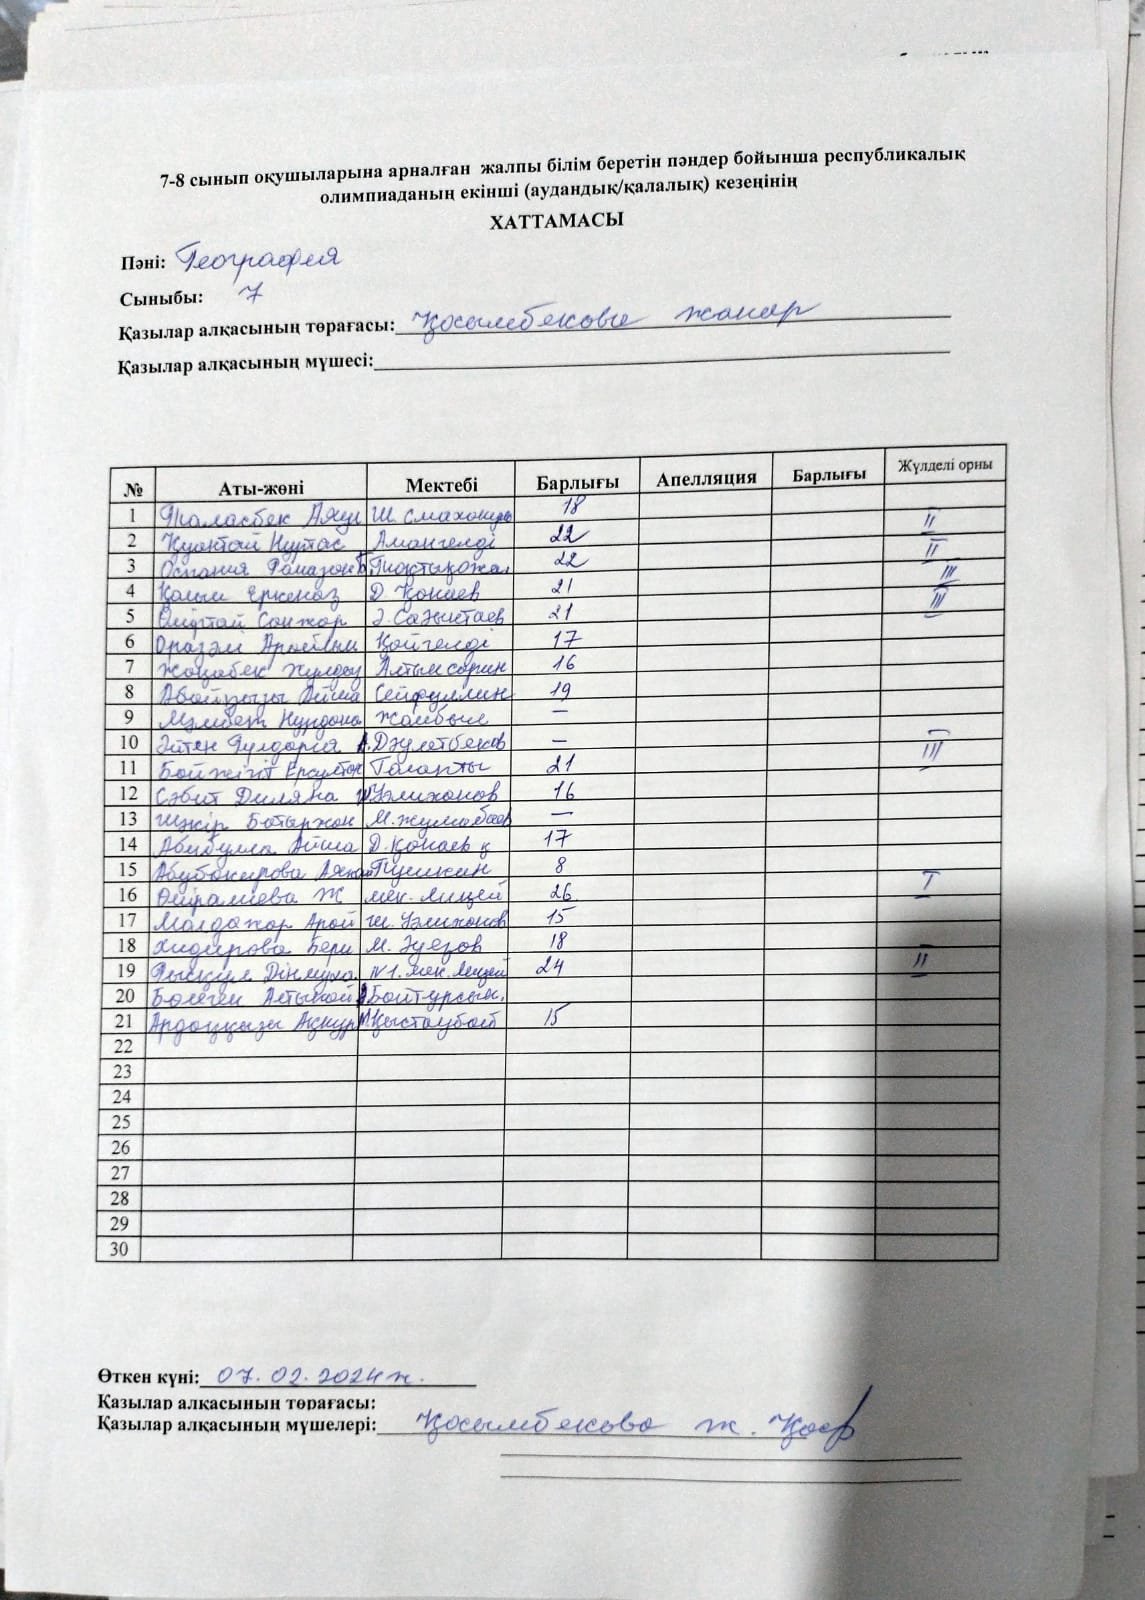 7-8 сынып оқушыларына арналған жалпы білім беретін пәндер бойынша республикалық
олимпиаданың екінші (аудандық/қалалық) кезеңінің
ХАТТАМАСЫ
Пәні: География
Сыныбы: 7
Қазылар алқасының төрағасы: Қосымбекова Жанар
Қазылар алқасының мүшесі:
№ Аты-жөні Мектебі Барлығы Апелляция Барлығы Жүлделі орны
1 Таласбек 18
2 Қуантай Нұртас Амангелді 22 II
3 Оспания Рамазан 22 II
4 Қалым Еркеназ Д. Қонаев 21 III
5 Санжар Ә. Сағынтаев 21 III
6 Оразәлі Қойгелді 17
7 Алтынсарин 16
8 Абайқызы Айша Сейфуллин 19
9 Мәлібек Нұрдана Жамбыл —
10 Гулдария А. Дәулетбеков —
11 Байжігіт Талапты 21 III
12 Сәбит Диляна Ш Уәлиханов 16
13 Шәкір Батыржан М. Жұмабаев —
14 Абибулла Айша Д. Қонаев қ 17
15 Абубакирова Пушкин 8
16 Ж мек. лицей 26 I
17 Молдажар Арай Ш. Уәлиханов 15
18 Хидирова М. Әуезов 18
19 Рысқұл Дінмұха N1. мек. лицей 24 II
20 Бөлеген Алтынай А Байтұрсын.
21 Ардаққызы Ақнұр М Қыстаубай 15
22
23
24
25
26
27
28
29
30
Өткен күні: 07.02.2024ж.
Қазылар алқасының төрағасы:
Қазылар алқасының мүшелері: Қосымбекова Ж.